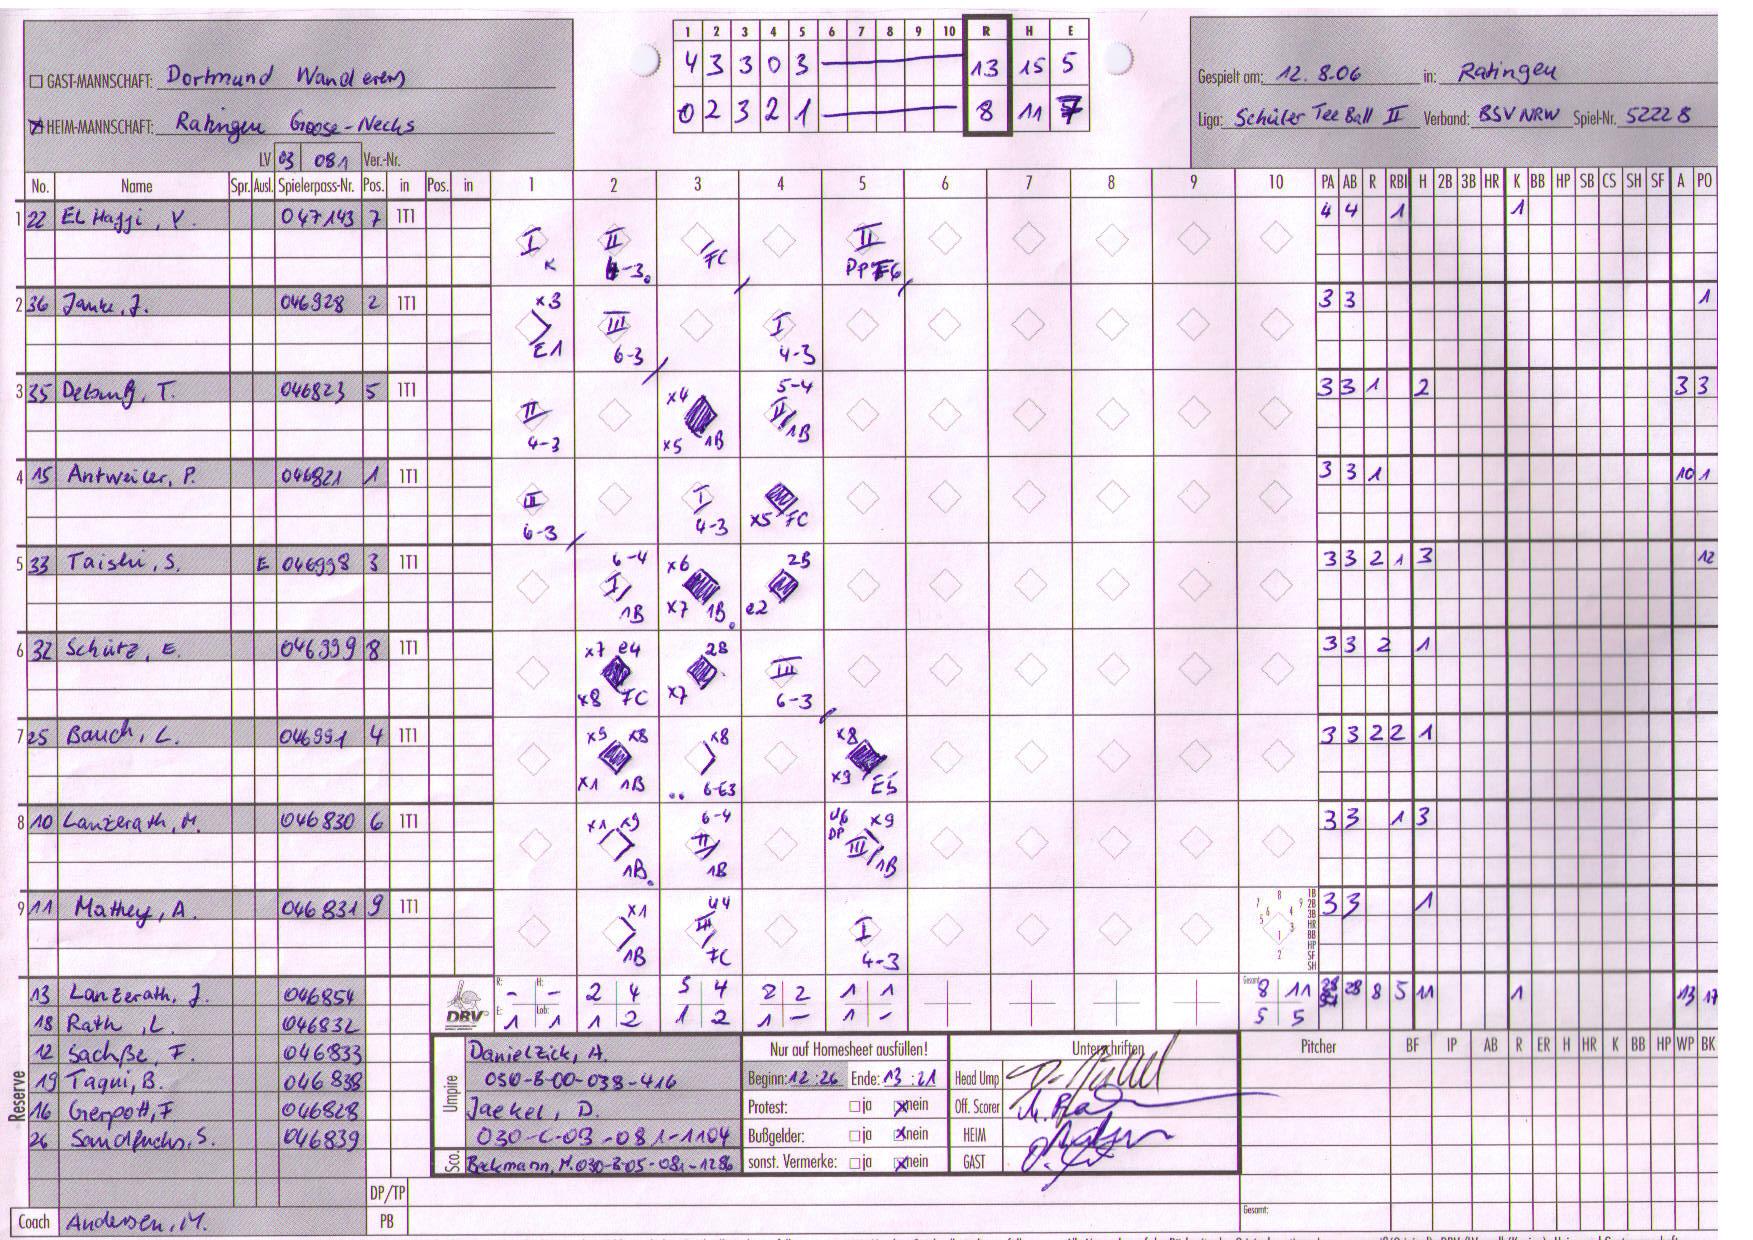 1 2 3 4 5 6 7 8 9 10 R H E
4 3 3 0 3 13 15 5
0 2 3 2 1 8 11 7
GAST-MANNSCHAFT: Dortmund Wanderers
HEIM-MANNSCHAFT: Ratingen Goose-Necks
LV 03 081 Ver.-Nr.
Gespielt am: 12.8.06 in: Ratingen
Liga: Schüler Tee Ball II Verband: BSV NRW Spiel-Nr. 5222 8
No. Name Spr. Ausl. Spielerpass-Nr. Pos. in Pos. in 1 2 3 4 5 6 7 8 9 10 PA AB R RBI H 2B 3B HR K BB HP SB CS SH SF A PO
1 22 EL Hajji, Y. 047143 7 1T1 I K II 4-3 FC II DP E6 4 4 1 1
2 36 Janke, J. 046928 2 1T1 x3 E1 III 6-3 I 4-3 3 3 1
3 35 T. 046823 5 1T1 II 4-3 x4 x5 1B 5-4 II 1B 3 3 1 2 3 3
4 15 Antweiler, P. 046821 1 1T1 III 6-3 I 4-3 x5 FC 3 3 1 10 1
5 33 Taishi, S. E 046998 3 1T1 6-4 I 1B x6 x7 1B 2B e2 3 3 2 1 3 12
6 32 Schütz, E. 046999 8 1T1 x7 e4 x8 FC 2B x7 III 6-3 3 3 2 1
7 25 Bauch, L. 046991 4 1T1 x9 x8 x1 1B x8 6-E3 x8 x9 E5 3 3 2 2 1
8 10 Lanzerath, M. 046830 6 1T1 x1 x9 1B 6-4 II 1B U6 DP x9 III 1B 3 3 1 3
9 11 Mathey, A. 046831 9 1T1 x1 1B U4 III FC I 4-3 3 3 1
13 Lanzerath, J. 046854
DBV R: - H: - E: 1 Lob: 1 2 4 1 2 5 4 1 2 2 2 1 - 1 1 1 - Gesamt: 8 11 5 5 28 8 5 11 1 13 17
18 Rath, L. 046832
12 Sachße, F. 046833
19 Taqui, B. 046838
16 Gerpott, F 046828
26 Sandfuchs, S. 046839
Reserve
Coach Andersen, M.
Umpire Danielzick, A.
030-B-00-038-416
Jaekel, D.
030-C-03-081-1104
Sco. Beckmann, M. 030-B-05-081-1286
DP/TP
PB
Nur auf Homesheet ausfüllen!
Beginn: 12:26 Ende: 13:21
Protest: ja nein
Bußgelder: ja nein
sonst. Vermerke: ja nein
Unterschriften
Head Ump
Off. Scorer
HEIM
GAST
Pitcher BF IP AB R ER H HR K BB HP WP BK
Gesamt: